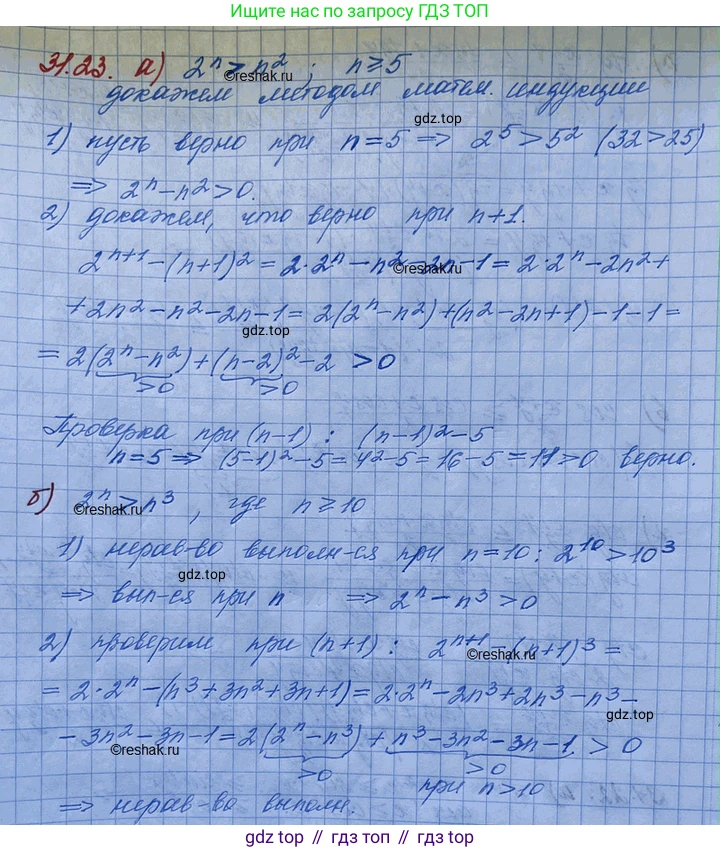 Ищите нас по запросу ГДЗ ТОП
31.23. а) 2ⁿ > n² ; n ⩾ 5
©reshak.ru
докажем методом матем. индукции
gdz.top
1) пусть верно при n = 5 ⇒ 2⁵ > 5² (32 > 25)
⇒ 2ⁿ – n² > 0.
2) докажем, что верно при n+1.
2ⁿ⁺¹ – (n+1)² = 2·2ⁿ – n² – 2n – 1 = 2·2ⁿ – 2n² +
©reshak.ru
+ 2n² – n² – 2n – 1 = 2(2ⁿ – n²) + (n² – 2n + 1) – 1 – 1 =
gdz.top
= 2(2ⁿ – n²) + (n – 2)² – 2 > 0
>0 >0
Проверка при (n–1) : (n–1)² – 5
n = 5 ⇒ (5–1)² – 5 = 4² – 5 = 16 – 5 = 11 > 0 верно.
б) 2ⁿ > n³ , где n ⩾ 10
©reshak.ru
1) нерав-во выполн-ся при n = 10 : 2¹⁰ > 10³
gdz.top
⇒ вып-ся при n ⇒ 2ⁿ – n³ > 0
2) проверим при (n+1) : 2ⁿ⁺¹ – (n+1)³ =
©reshak.ru
= 2·2ⁿ – (n³ + 3n² + 3n + 1) = 2·2ⁿ – 2n³ + 2n³ – n³ –
gdz.top
– 3n² – 3n – 1 = 2(2ⁿ – n³) + n³ – 3n² – 3n – 1 > 0
©reshak.ru
>0 >0
при n > 10
⇒ нерав-во выполн.
gdz top // гдз топ // gdz top // гдз топ